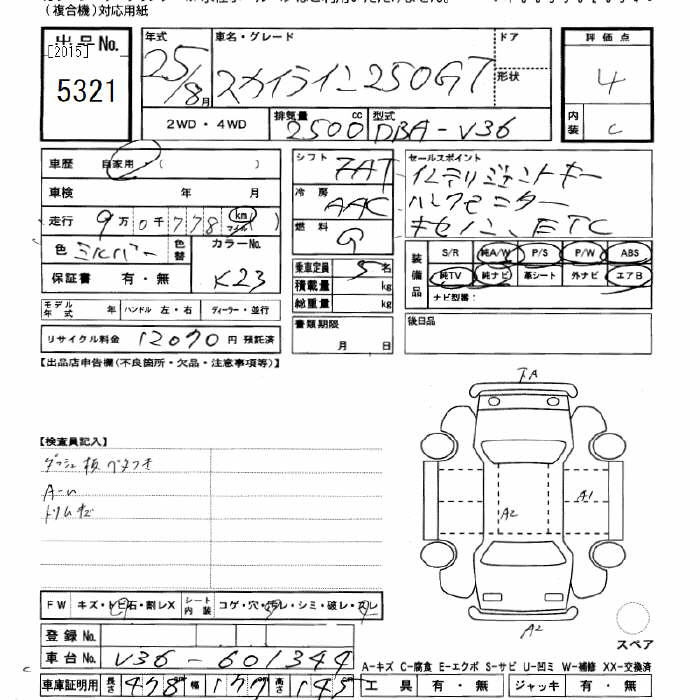 (複合機)対応用紙
出品No.
[2015]
5321
年式 25/8月
車名・グレード
スカイライン250GT
ドア
形状
評価点
4
内装 C
2WD・4WD
排気量 2500 cc
型式 DBA-V36
車歴 自家用 ( )
車検 年 月
走行 9万0千778 km マイル ( )
色 シルバー 色替
カラーNo. K23
保証書 有・無
シフト 7AT
冷房 AAC
燃料 G
乗車定員 5名
積載量 kg
総重量 kg
セールスポイント
インテリジェントキー
バックモニター
キセノン、ETC
装備品 S/R 純A/W P/S P/W ABS
純TV 純ナビ 革シート 外ナビ エアB
ナビ型番:
モデル年式 年 ハンドル 左・右 ディーラー・並行
書類期限 月 日
後日品
リサイクル料金 12070 円 預託済
【出品店申告欄(不良箇所・欠品・注意事項等)】
【検査員記入】
ダッシュ板ベタつき
トリムキズ
A2
A1
A2
FW キズ・トビ石・割レX シート内装 コゲ・穴・汚レ・シミ・破レ・スレ
スペア
登録No.
車台No. V36-601344
A-キズ C-腐食 E-エクボ S-サビ U-凹ミ W-補修 XX-交換済
車庫証明用 長さ 478 幅 177 高さ 145
工具 有・無 ジャッキ 有・無